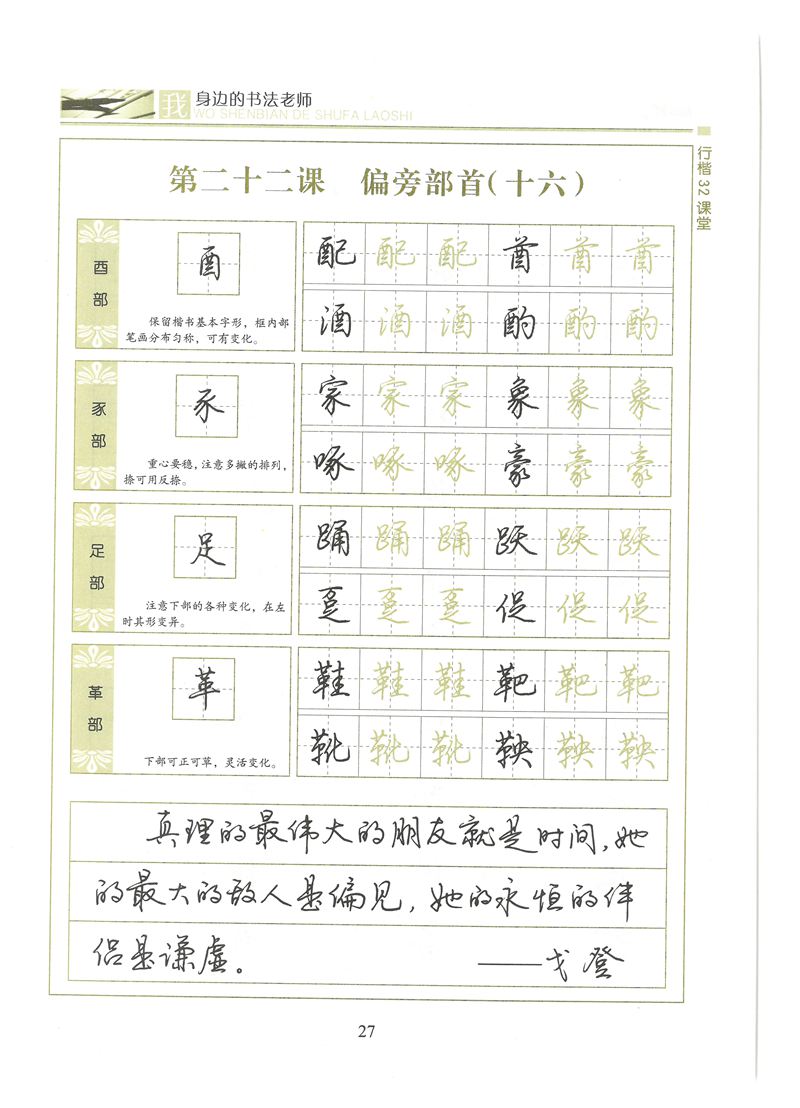 我 身边的书法老师
WO SHENBIAN DE SHUFA LAOSHI
行楷32课堂
第二十二课 偏旁部首(十六)
酉部
酉
保留楷书基本字形，框内部
笔画分布匀称，可有变化。
配配配酋酋酋
酒酒酒酌酌酌
豕部
豕
重心要稳，注意多撇的排列，
捺可用反捺。
家家家象象象
啄啄啄豪豪豪
足部
足
注意下部的各种变化，在左
时其形变异。
踊踊踊跃跃跃
趸趸趸促促促
革部
革
下部可正可草，灵活变化。
鞋鞋鞋靶靶靶
靴靴靴鞅鞅鞅
真理的最伟大的朋友就是时间，她
的最大的敌人是偏见，她的永恒的伴
侣是谦虚。 ——戈登
27